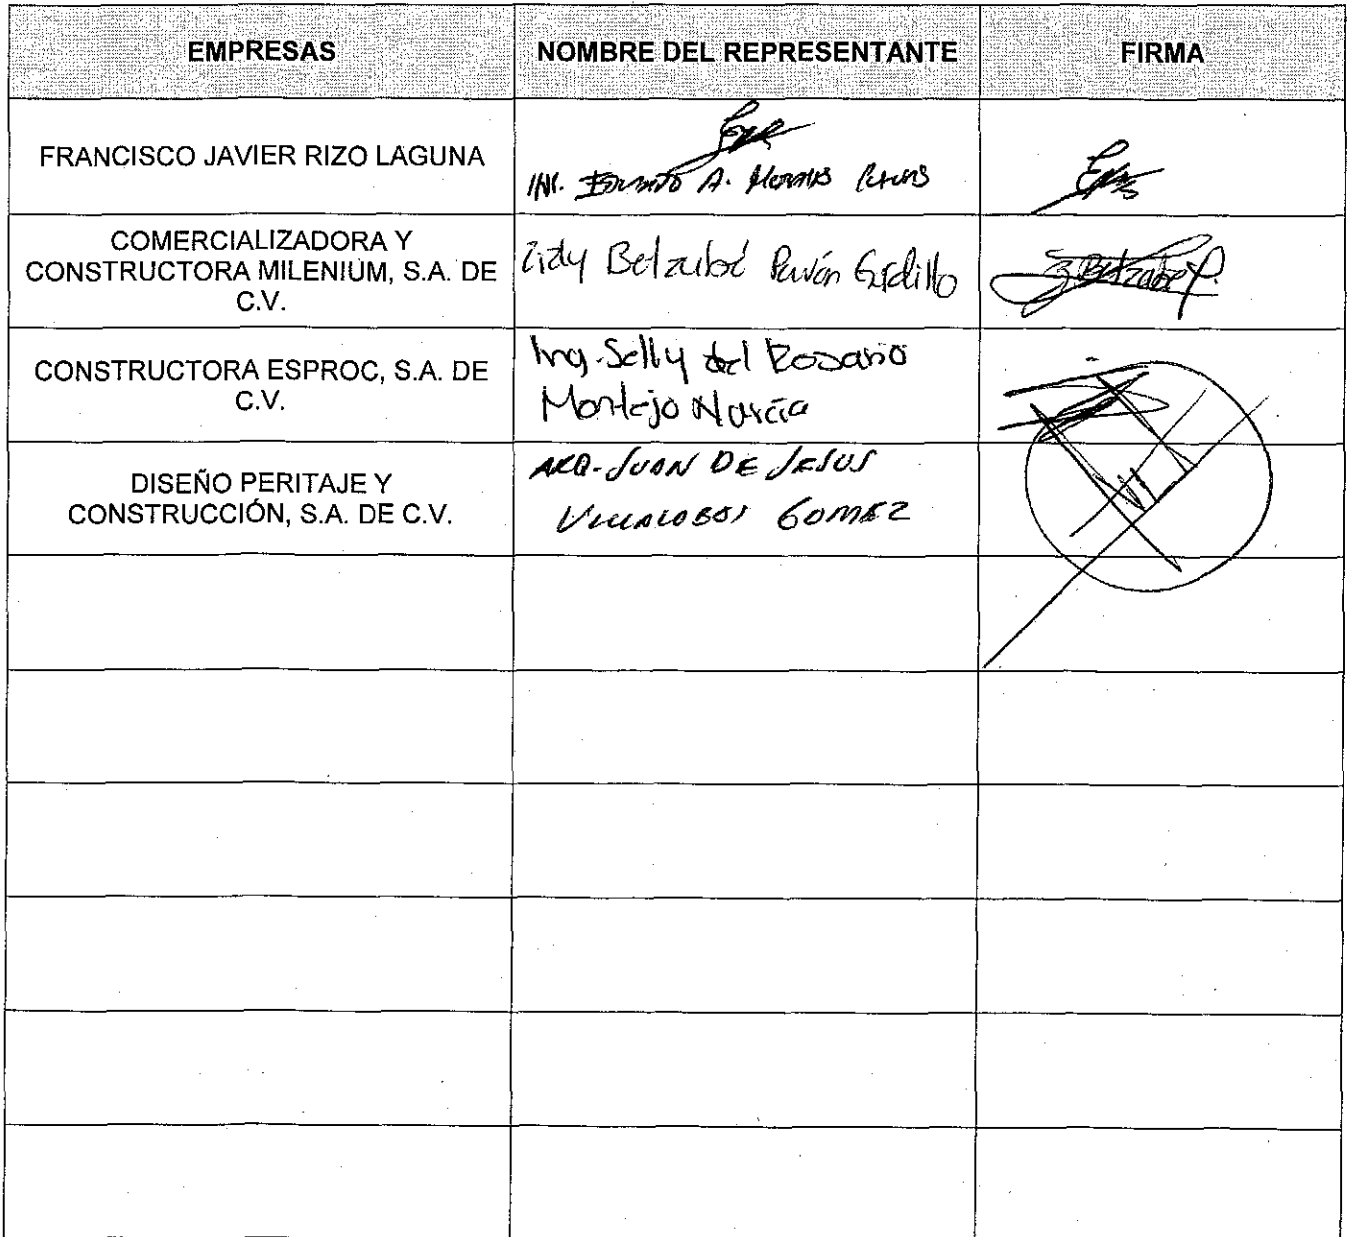 EMPRESAS
NOMBRE DEL REPRESENTANTE
FIRMA
FRANCISCO JAVIER RIZO LAGUNA
A.
COMERCIALIZADORA Y
CONSTRUCTORA MILENIUM, S.A. DE
C.V.
Betzabé Pavón
CONSTRUCTORA ESPROC, S.A. DE
C.V.
Ing. Selly del Rosario
Montejo
DISEÑO PERITAJE Y
CONSTRUCCIÓN, S.A. DE C.V.
ARQ. JUAN DE JESUS
VILLALOBOS GOMEZ